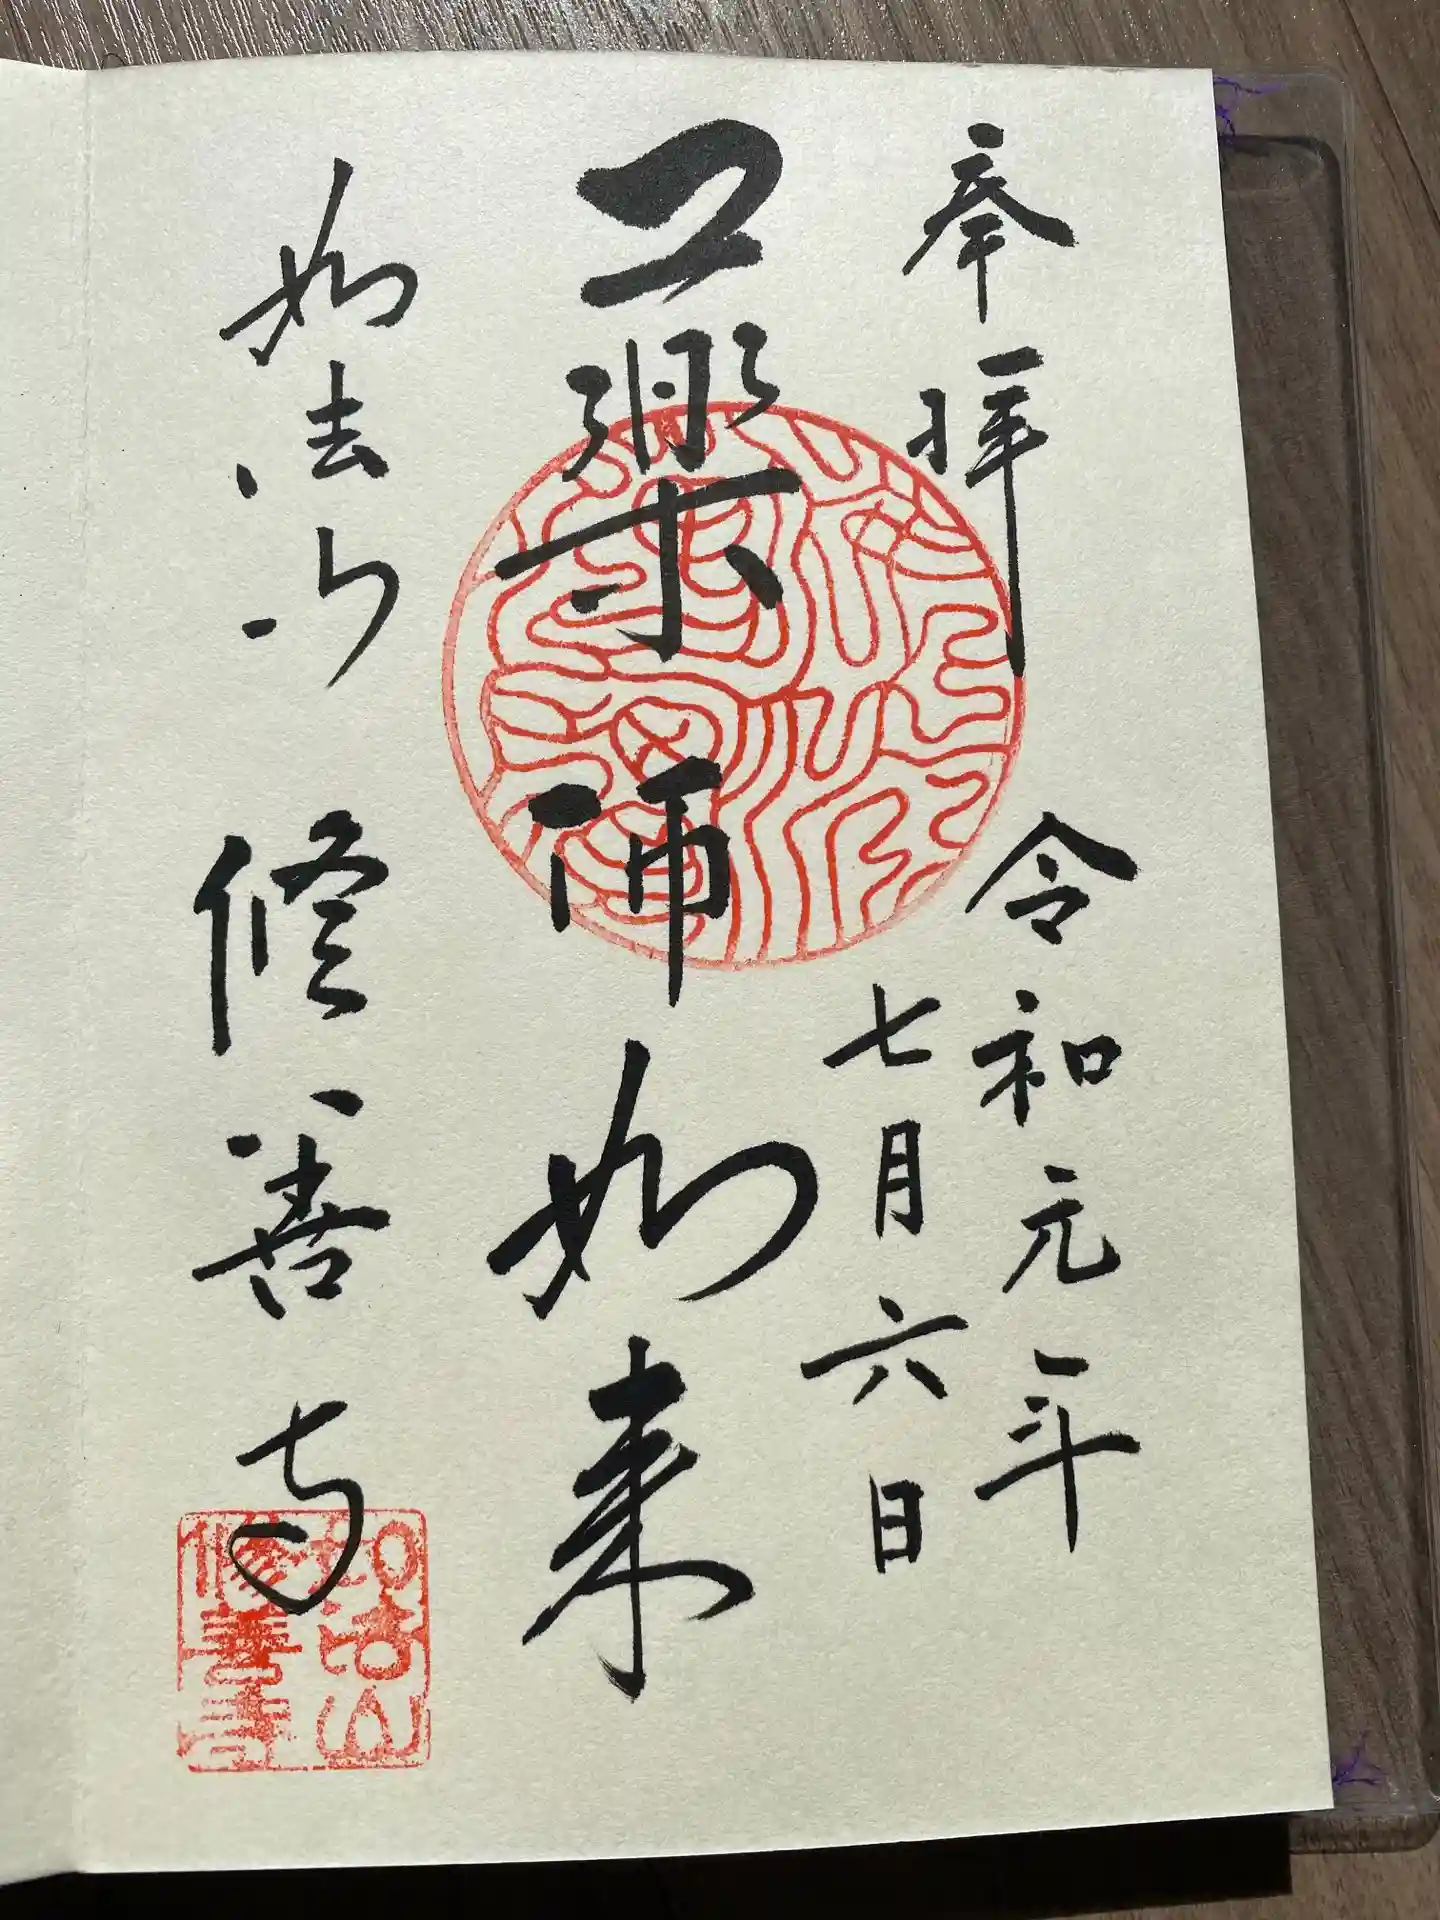 奉拝
令和元年
七月六日
薬師如来
如法山
修善寺
如法山
修善寺